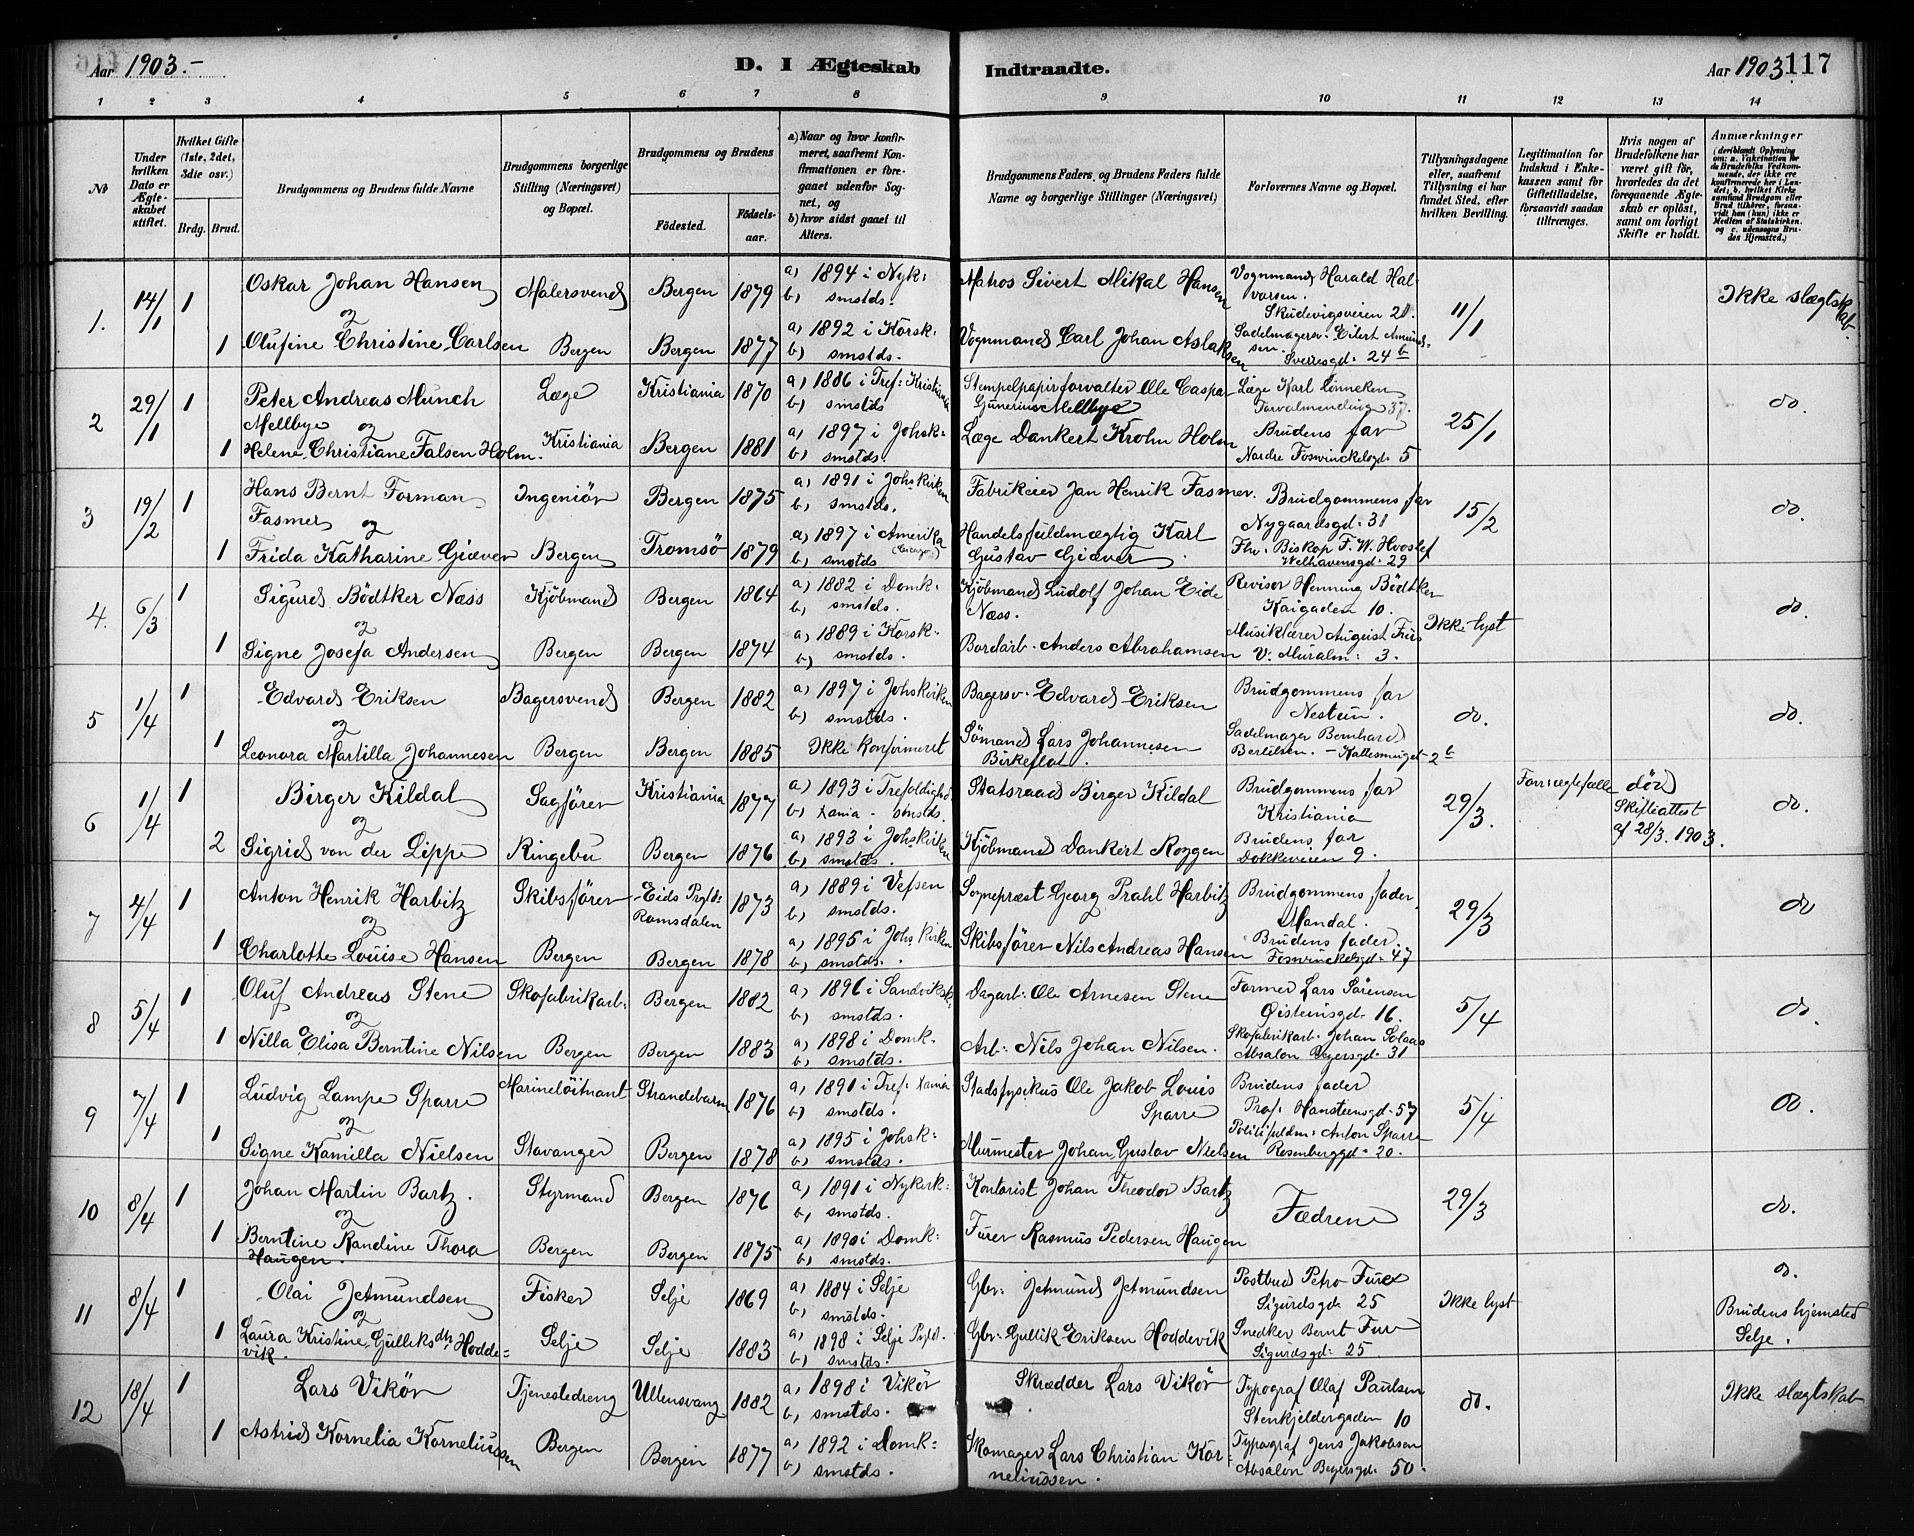 Aar 1903.-
D. I Ægteskab
Indtraadte.
Aar 1903
117
1 2 3 4 5 6 7 8 9 10 11 12 13 14
No
Under hvilken Dato er Ægteskabet stiftet.
Hvilket Gifte (1ste, 2det, 3die osv.)
Brdg. Brud.
Brudgommens og Brudens fulde Navne
Brudgommens borgerlige Stilling (Næringsvei) og Bopæl.
Brudgommens og Brudens
Fødested.
Fødselsaar.
a) Naar og hvor konfirmeret, saafremt Konfirmationen er foregaaet udenfor Sognet, og
b) hvor sidst gaaet til Alters.
Brudgommens Faders, og Brudens Faders fulde Navne og borgerlige Stillinger (Næringsvei)
Forlovernes Navne og Bopæl.
Tillysningsdagene eller, saafremt Tillysning ei har fundet Sted, efter hvilken Bevilling.
Legitimation for Indskud i Enkekassen samt for Giftetilladelse, forsaavidt saadan tiltrænges.
Hvis nogen af Brudefolkene har været gift før, hvorledes da det foregaaende Ægteskab er opløst, samt om lovligt Skifte er holdt.
Anmærkninger (deriblandt Oplysning om: a. Vakcination for de Brudefolks Vedkommende, der ikke ere konfirmerede her i Landet; b. hvilket Kirkesamfund Brudgom eller Brud tilhører, forsaavidt han (hun) ikke er Medlem af Statskirken. og c. udensogns Brudes Hjemsted.)
1. 14/1 1 Oskar Johan Hansen Malersvend Bergen 1879 a) 1894 i Nyk: b) smstds. Matros Sivert Mikal Hansen Vognmand Harald Halvorsen. Skudevigsveien 21. 11/1 Ikke slægtskab.
og
1 Olufine Christine Carlsen Bergen Bergen 1877 a) 1892 i Korsk. b) smstds. Vognmand Carl Johan Aslaksen Sadelmagersv. Eilert Amundsen. Sverresgd: 24 b
2 29/1 1 Peter Andreas Munch Mellbye Læge Kristiania 1870 a) 1886 i Tref: Kristiania b) smstds Stempelpapirforvalter Ole Caspar Gunerius Mellbye Læge Karl Lönneken Torvalmending 37. 25/1 do.
og
1 Helene Christiane Falsen Holm. Kristiania Bergen 1881 a) 1897 i Johsk: b) smstds. Læge Dankert Krohn Holm Brudens far Nordre Foswinckelsgd: 5
3 19/2 1 Hans Bernt Forman Fasmer Ingeniör Bergen 1875 a) 1891 i Johskirken b) smstds. Fabrikeier Jan Henrik Fasmer. Brudgommens far Nygaardsgd: 31 15/2 do.
og
1 Frida Katharine Giæver Bergen Tromsö 1879 a) 1897 i Amerika b) smstds Handelsfuldmægtig Karl Gustav Giæver. Fhv. Biskop F. W. Hvoslef Welhavensgd: 29
4. 6/3 1 Sigurd Bödtker Næss Kjöbmand Bergen 1864 a) 1882 i Domk: b) smstds. Kjöbmand Ludolf Johan Eide Næss. Revisor Henning Bödtker Kaigaden 10. Ikke lyst do.
og
1 Signe Josefa Andersen Bergen Bergen 1874 a) 1889 i Korsk. b) smstds. Bordarb. Anders Abrahamsen Musiklærer August Fuis V. Muralm: 3.
5 1/4 1 Edvard Eriksen Bagersvend Bergen 1882 a) 1897 i Johskirken b) smstds. Bagersv. Edvard Eriksen Brudgommens far Nestun. do. do.
og
1 Leonora Martilla Johannesen Bergen Bergen 1885 Ikke konfirmeret Sömand Lars Johannesen Birkeflot. Sadelmager Bernhard Bertelsen. - Kattesmuget 2 b
6 1/4 1 Birger Kildal Sagförer Kristiania 1877 a) 1893 i Trefoldighed b) Xania - smstds. Statsraad Birger Kildal Brudgommens far Kristiania 29/3. død Skifteattest af 28/3. 1903. do.
og
2 Sigrid von der Lippe Ringebu Bergen 1876 a) 1893 i Johskirken b) smstds. Kjöbmand Dankert Roggen Brudens far Dokkeveien 9.
7 4/4 1 Anton Henrik Harbitz Skibsförer Eids Prgld: Romsdalen 1873 a) 1889 i Vefsen b) smstds. Sognepræst Georg Prahl Harbitz Brudgommens fader. Mandal. 29/3 do
og
1 Charlotte Louise Hansen Bergen Bergen 1878 a) 1895 i Johskirken b) smstds. Skibsförer Nils Andreas Hansen Brudens fader. Foswinckelsgd: 47
8 5/4 1 Oluf Andreas Stene Skofabrikarb: Bergen 1882 a) 1896 i Sandviksk. b) smstds. Dagarb: Ole Arnesen Stene Former Lars Sörensen Øisteinsgd: 16. 5/4 do.
og
1 Nilla Elisa Berntine Nilsen Bergen Bergen 1883 a) 1898 i Domk. b) smstds. Arb: Nils Johan Nilsen. Skofabrikarb. Johan Solaas Absalon Beyersgd: 31
9 7/4 1 Ludvig Lampe Sparre Marinelöitnant Strandebarm 1876 a) 1891 i Tref: Xania b) smstds. Stadsfysikus Ole Jakob Louis Sparre Brudens fader Prof: Hansteensgd: 57 5/4 do.
og
1 Signe Kamilla Nielsen Stavanger Bergen 1878 a) 1895 i Johsk: b) smstds. Murmester Johan Gustav Nielsen Politifuldm: Anton Sparre Rosenberggd: 20.
10 8/4 1 Johan Martin Bartz. Styrmand Bergen 1876 a) 1891 i Nykirk: b) smstds. Kontorist Johan Theodor Bartz Fædrene 29/3 do.
og
1 Berntine Randine Thora Haugen. Bergen Bergen 1875 a) 1890 i Domk: b) smstds. Furer Rasmus Pedersen Haugen
11 8/4 1 Olai Jetmundsen Fisker Selje 1869 a) 1884 i Selje b) smstds. Gbr: Jetmund Jetmundsen Postbud Petro Furex Sigurdsgd: 25 Ikke lyst do. Brudens hjemsted Selje.
og
1 Laura Kristine Gulleksdtr Hoddevik. Selje Selje 1883 a) 1898 i Selje Prgld. b) smstds. Gbr: Gullik Eriksen Hoddevik Snedker Bernt Fur Sigurdsgd: 25
12 18/4 1 Lars Vikör Tjenestedreng Ullensvang 1882 a) 1898 i Vikör b) smstds. Skrædder Lars Vikör Typograf Olaf Paulsen Stenkjeldergaden 10 do. Ikke slægtskab
1 Astrid Kornelia Korneliussen Bergen Bergen 1877 a) 1892 i Domk: b) smstds. Skomager Lars Christian Korneliussen. Typograf Jens Jakobsen Absalon Beyersgd. 50.